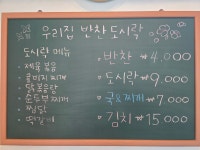 우리집 반찬 도시락
도시락 메뉴
· 제육볶음
· 김치찌개
· 닭볶음탕
· 순두부찌개
· 찜닭
· 떡갈비
· 반찬 ₩4,000
· 도시락 ₩9,000
· 국&찌개 ₩7,000
· 김치 ₩15,000